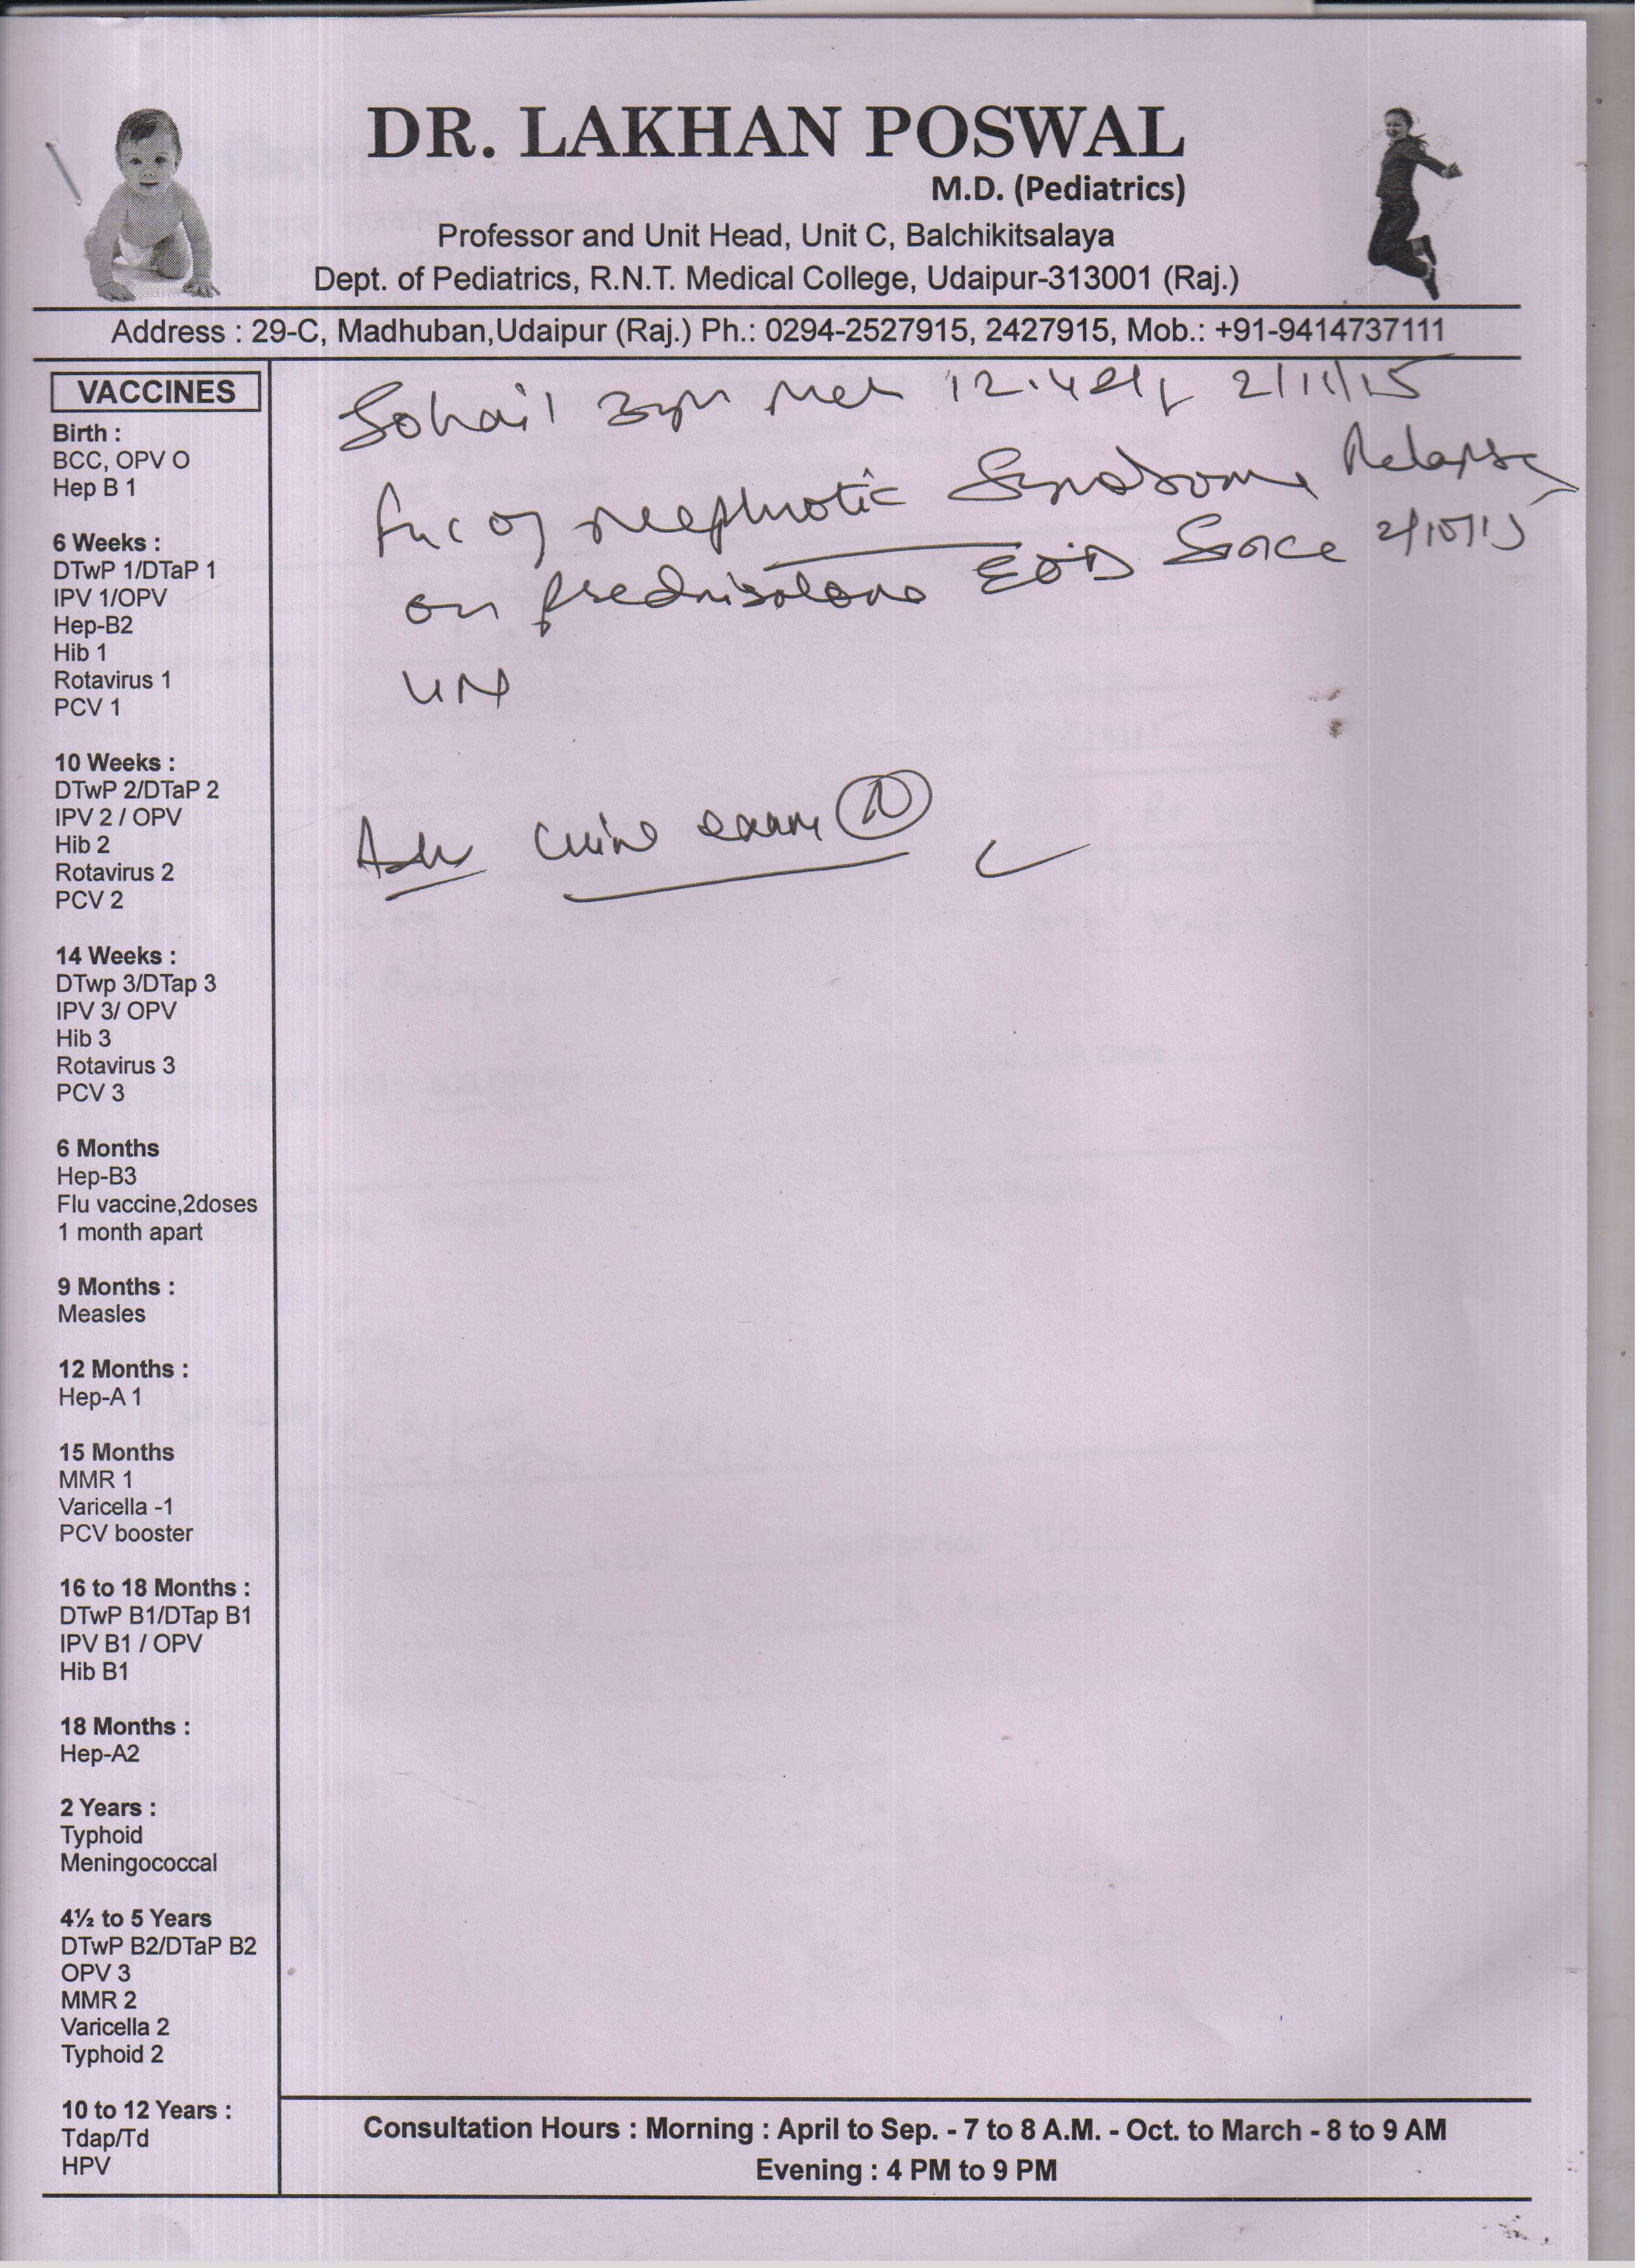 DR. LAKHAN POSWAL
M.D. (Pediatrics)
Professor and Unit Head, Unit C, Balchikitsalaya
Dept. of Pediatrics, R.N.T. Medical College, Udaipur-313001 (Raj.)
Address : 29-C, Madhuban,Udaipur (Raj.) Ph.: 0294-2527915, 2427915, Mob.: +91-9414737111
VACCINES
Birth :
BCC, OPV O
Hep B 1
6 Weeks :
DTwP 1/DTaP 1
IPV 1/OPV
Hep-B2
Hib 1
Rotavirus 1
PCV 1
10 Weeks :
DTwP 2/DTaP 2
IPV 2 / OPV
Hib 2
Rotavirus 2
PCV 2
14 Weeks :
DTwp 3/DTap 3
IPV 3/ OPV
Hib 3
Rotavirus 3
PCV 3
6 Months
Hep-B3
Flu vaccine,2doses
1 month apart
9 Months :
Measles
12 Months :
Hep-A 1
15 Months
MMR 1
Varicella -1
PCV booster
16 to 18 Months :
DTwP B1/DTap B1
IPV B1 / OPV
Hib B1
18 Months :
Hep-A2
2 Years :
Typhoid
Meningococcal
4½ to 5 Years
DTwP B2/DTaP B2
OPV 3
MMR 2
Varicella 2
Typhoid 2
10 to 12 Years :
Tdap/Td
HPV
Sohail 2/11/15
of nephrotic Syndrome Relapse
on prednisolone EOD Since 2/10/15
Adv urine exam N
Consultation Hours : Morning : April to Sep. - 7 to 8 A.M. - Oct. to March - 8 to 9 AM
Evening : 4 PM to 9 PM